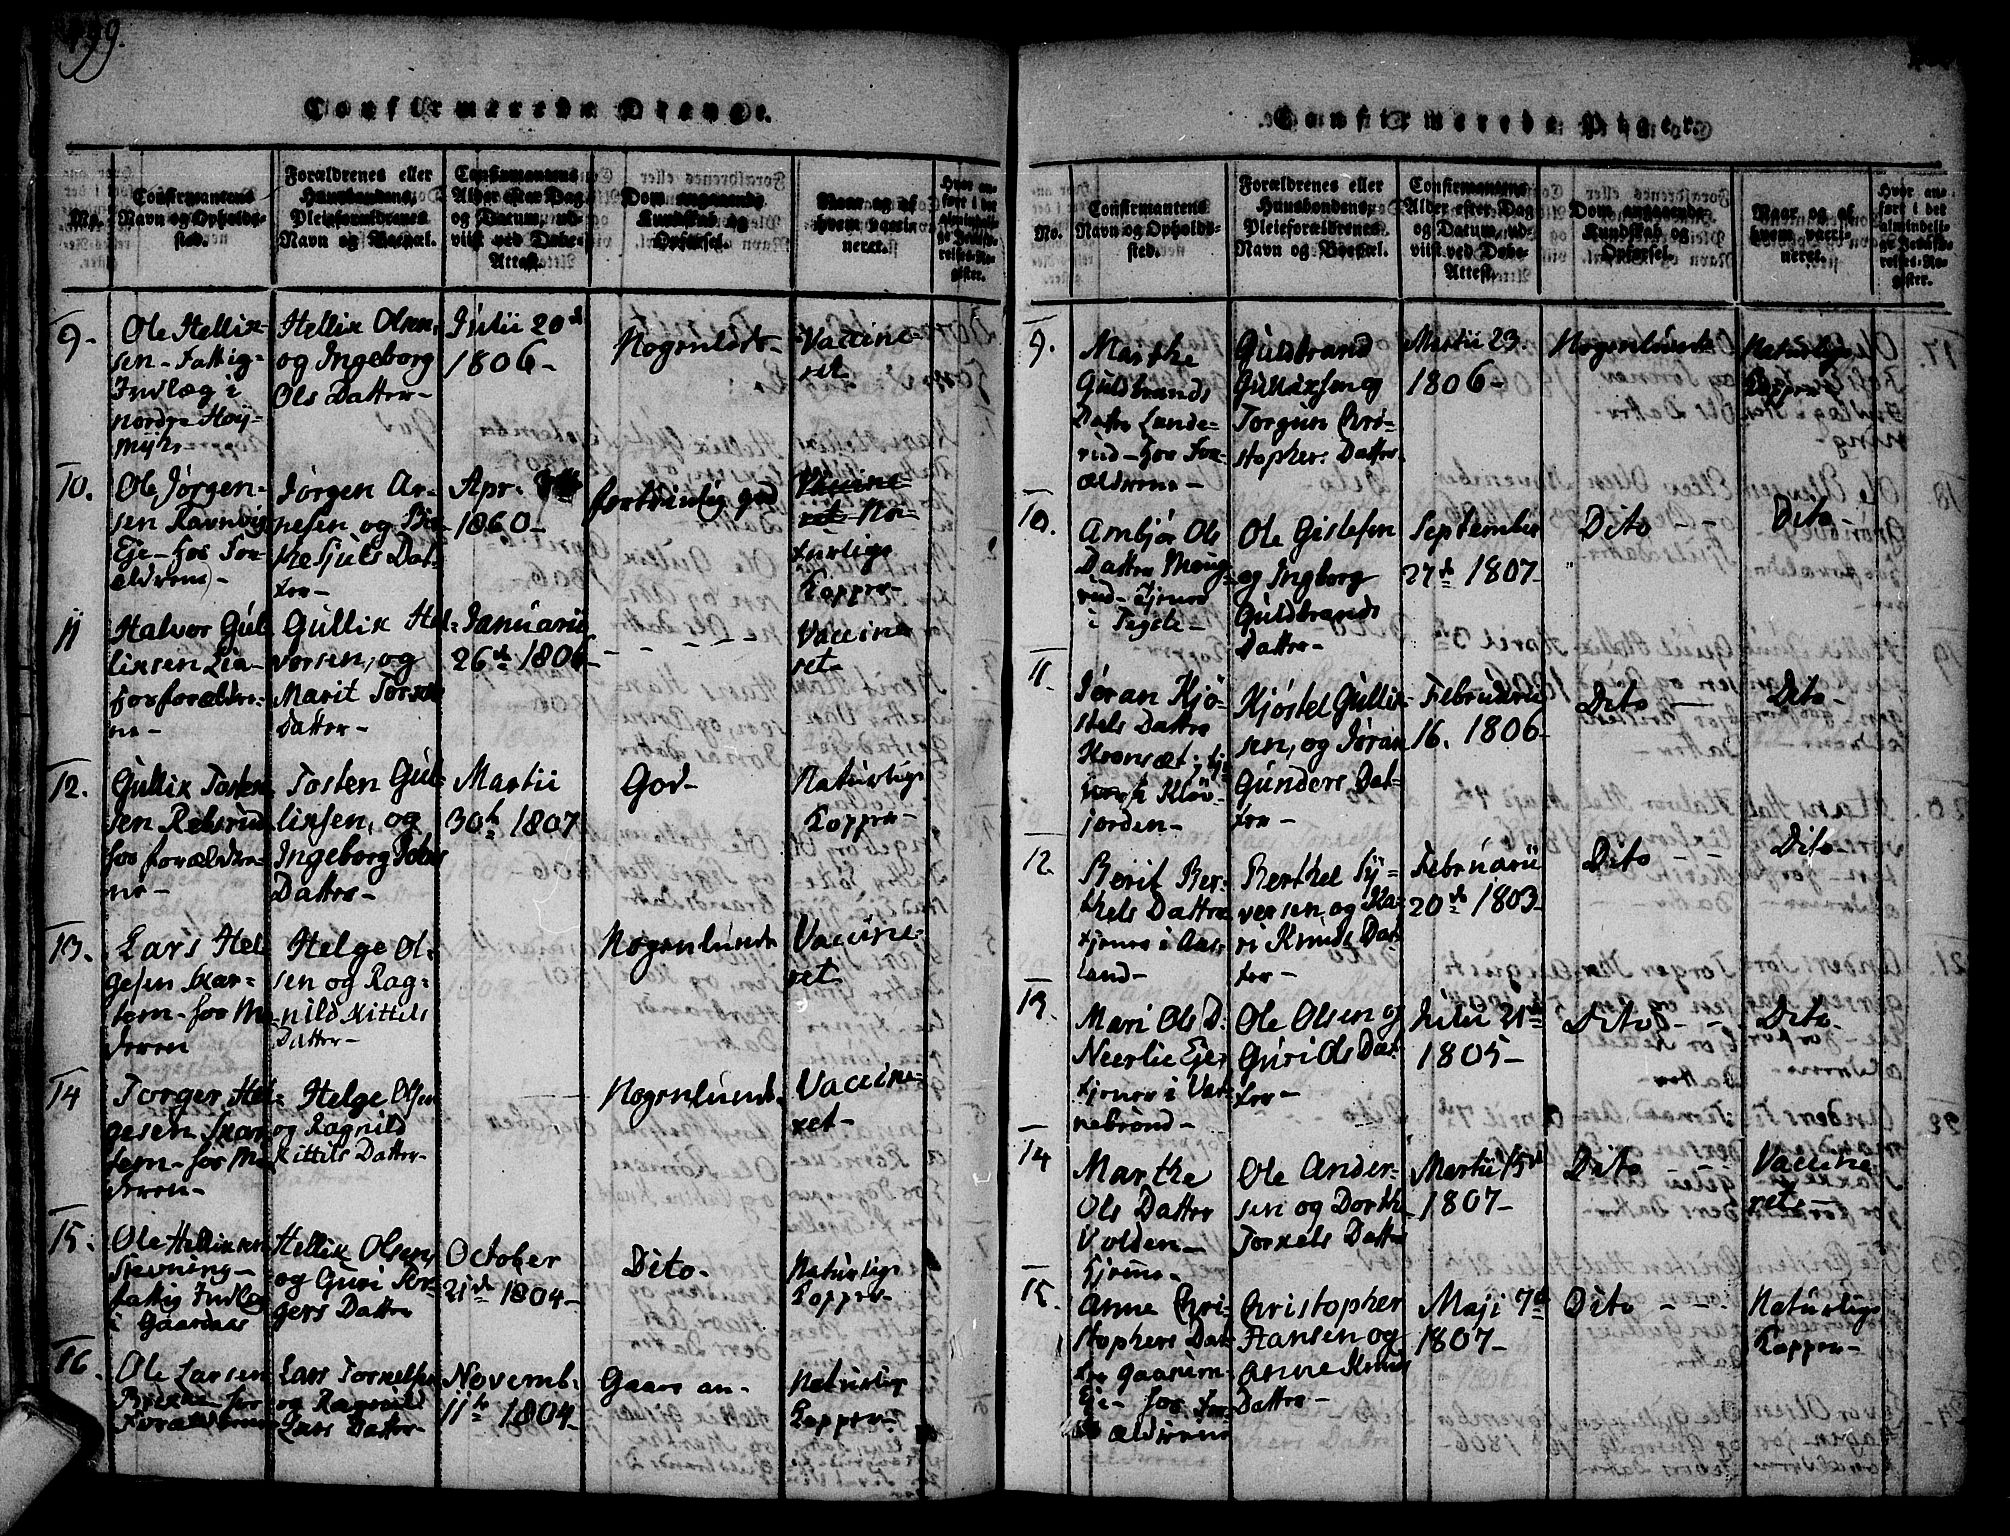 199.
Confirmerede Drenge.
No.
Confirmantens
Navn og Opholds-
sted.
Forældrenes eller
Huusbondens,
Pleieforældrenes
Navn og Boepæl.
Confirmantens
Alder efter Dag
og Datum, ud-
viist ved Døbe-
Attest.
Dom angaaende
Kundskab og
Opførsel.
Naar og af
hvem vacci-
neret.
Hvor an-
ført i det
almindeli-
ge Jevnfø-
relses-Re-
gister.
9.
Ole Hellik-
sen - Fattig-
Indlæg i
nordre Høy-
myhr -
Hellik Olsen,
og Ingeborg
Ols Datter -
Julii 20de
1806 -
Nogenleds -
Vaccine-
ret -
10.
Ole Jørgen-
sen Ravnvig
Eje - hos For-
ældrene -
Jørgen Ar-
nesen og
Sjuls Dat-
ter -
Apr.
1860 -
fortrinlig god
Vaccine-
ret Na-
turlige
Kopper -
11
Halvor Gul-
liksen Lia -
hos foreldre-
ne -
Gullik Hal-
vorsen, og
Marit
Datter -
Januarii
26de 1806 -
- - - -
Vaccine-
ret -
12.
Gullik Tosten-
sen
hos forældre-
ne -
Tosten Gul-
liksen, og
Ingeborg
Datter -
Martii
30te 1807
God -
Naturlige
Kopper -
13.
Lars Hel-
gesen Skar-
tem - hos Mo-
deren
Helge Ol-
sen og Rag-
nild Kittils
Datter -
Nogenlunde
Vaccine-
ret -
14
Torger Hel-
gesen Skar-
tem - hos Mo-
deren -
Helge Olsen
og Ragnild
Kittils Datter -
Nogenlunde
Vaccine-
ret -
15.
Ole Helliksen
Stevning -
fattig Indlæg
i Gaardaas
Hellik Olsen,
og Guri Tor-
gers Datter
October
21de 1804 -
Dito -
Naturlige
Kopper -
16.
Ole Larsen
Brekke hos
Forældrene
Lars Torkelsen
og Ragnild
Lars Datter -
Novemb.
11te 1804 -
Gaaer an -
Naturlige
Kopper -
Confirmerede Piger.
No.
Confirmantens
Navn og Opholds-
sted.
Forældrenes eller
Huusbondens,
Pleieforældrenes
Navn og Boepæl.
Confirmantens
Alder efter Dag
og Datum, ud-
viist ved Døbe-
Attest.
Dom angaaende
Kundskab og
Opførsel.
Naar og af
hvem vacci-
neret.
Hvor an-
ført i det
almindeli-
ge Jevnfø-
relses-Re-
gister.
9.
Marthe
Guldbrands
Datter Lande-
rud - hos For-
ældrene -
Guldbrand
Gulliksen og
Torgun Chri-
stophers Datter
Martii 23.
1806 -
Nogenlunde
Naturlige
Kopper
10.
Ambjør Ols
Datter
rud - tjener
i Tegste -
Ole Gislesen
og Ingborg
Guldbrands
Datter -
September
27de 1807 -
Dito - -
Dito -
11.
Jøran Kjø-
stels Datter
Kronsæt,
Kløv-
jorden -
Kjøstel Gullik-
sen, og Jøran
Gunders Dat-
ter -
Februarii
16. 1806 -
Dito -
Dito -
12.
Berit Ber-
thels Datter
tjener i Aas-
land -
Berthel Sy-
versen, og Ka-
ri Knuds Dat-
ter -
Februarii
20de 1803 -
Dito - -
Dito -
13.
Mari Ols D.
Neerlie Eje,
tjener i Var-
nebrønd -
Ole Olsen og
Guri Ols Dat-
ter -
Julii 21de
1805 -
Dito - -
Dito -
14
Marthe
Ols Datter
Volden -
Hjemme -
Ole Ander-
sen og Dorthe
Torkels Datter
Martii 15de
1807 -
Dito - -
Vaccine-
ret -
15.
Anne Chri-
stophers Dat-
ter Gaasern-
Eje - hos For-
ældrene
Christopher
Hansen og
Anne Knuds
Datter -
Maji 7de
1807 -
Dito - -
Naturlige
Kopper -